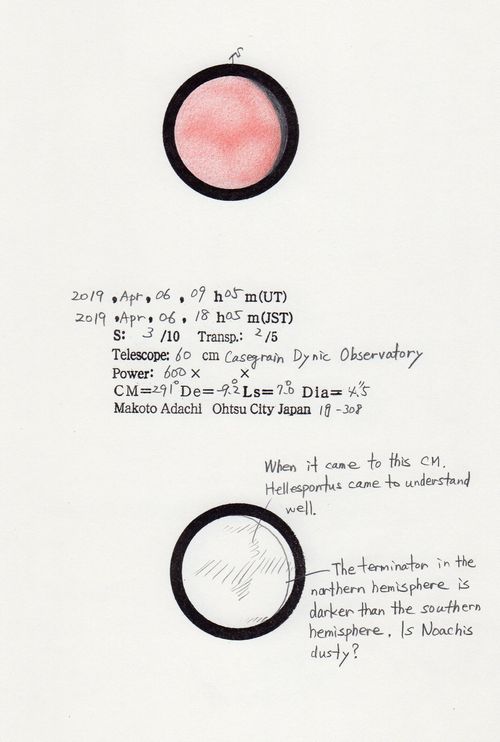 S
2019, Apr, 06, 09 h 05 m (UT)
2019, Apr, 06, 18 h 05 m (JST)
S: 3 /10 Transp.: 2 /5
Telescope: 60 cm Casegrain Dynic Observatory
Power: 600 × ×
CM=291° De=-9.2° Ls=7.0° Dia=4."5
Makoto Adachi Ohtsu City Japan 19-308
When it came to this CM,
Hellespontus came to understand
well.
The terminator in the
northern hemisphere is
darker than the southern
hemisphere. Is Noachis
dusty?